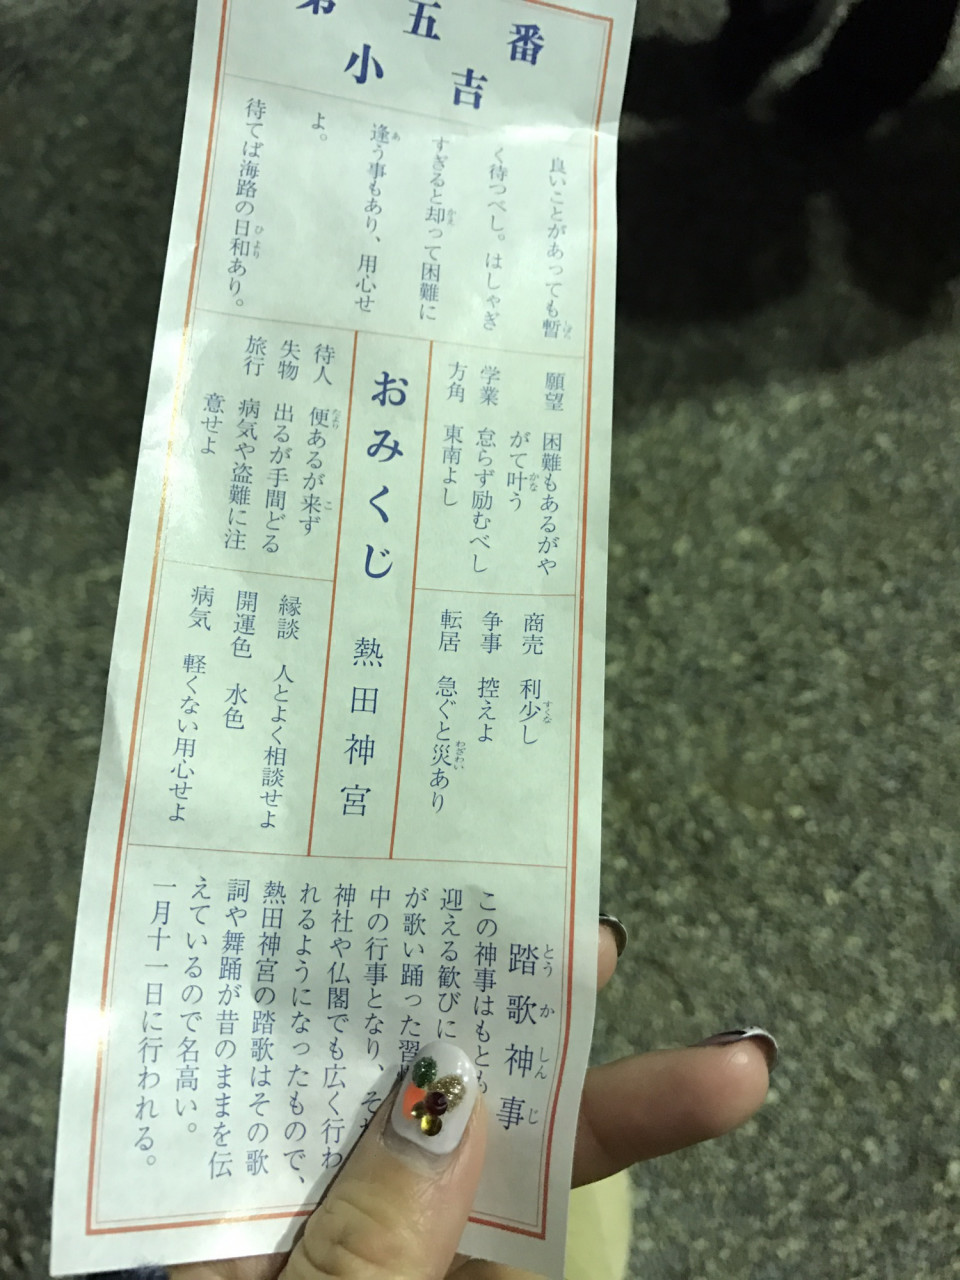 第五番
小吉
良いことがあっても暫
く待つべし。はしゃぎ
すぎると却って困難に
逢う事もあり、用心せ
よ。
待てば海路の日和あり。
願望 困難もあるがや
がて叶う
学業 怠らず励むべし
方角 東南よし
商売 利少し
争事 控えよ
転居 急ぐと災あり
おみくじ 熱田神宮
待人 便あるが来ず
失物 出るが手間どる
旅行 病気や盗難に注
意せよ
縁談 人とよく相談せよ
開運色 水色
病気 軽くない用心せよ
踏歌神事
この神事はもとも
迎える歓びに
が歌い踊った習
中の行事となり、
神社や仏閣でも広く行わ
れるようになったもので、
熱田神宮の踏歌はその歌
詞や舞踊が昔のままを伝
えているので名高い。
一月十一日に行われる。